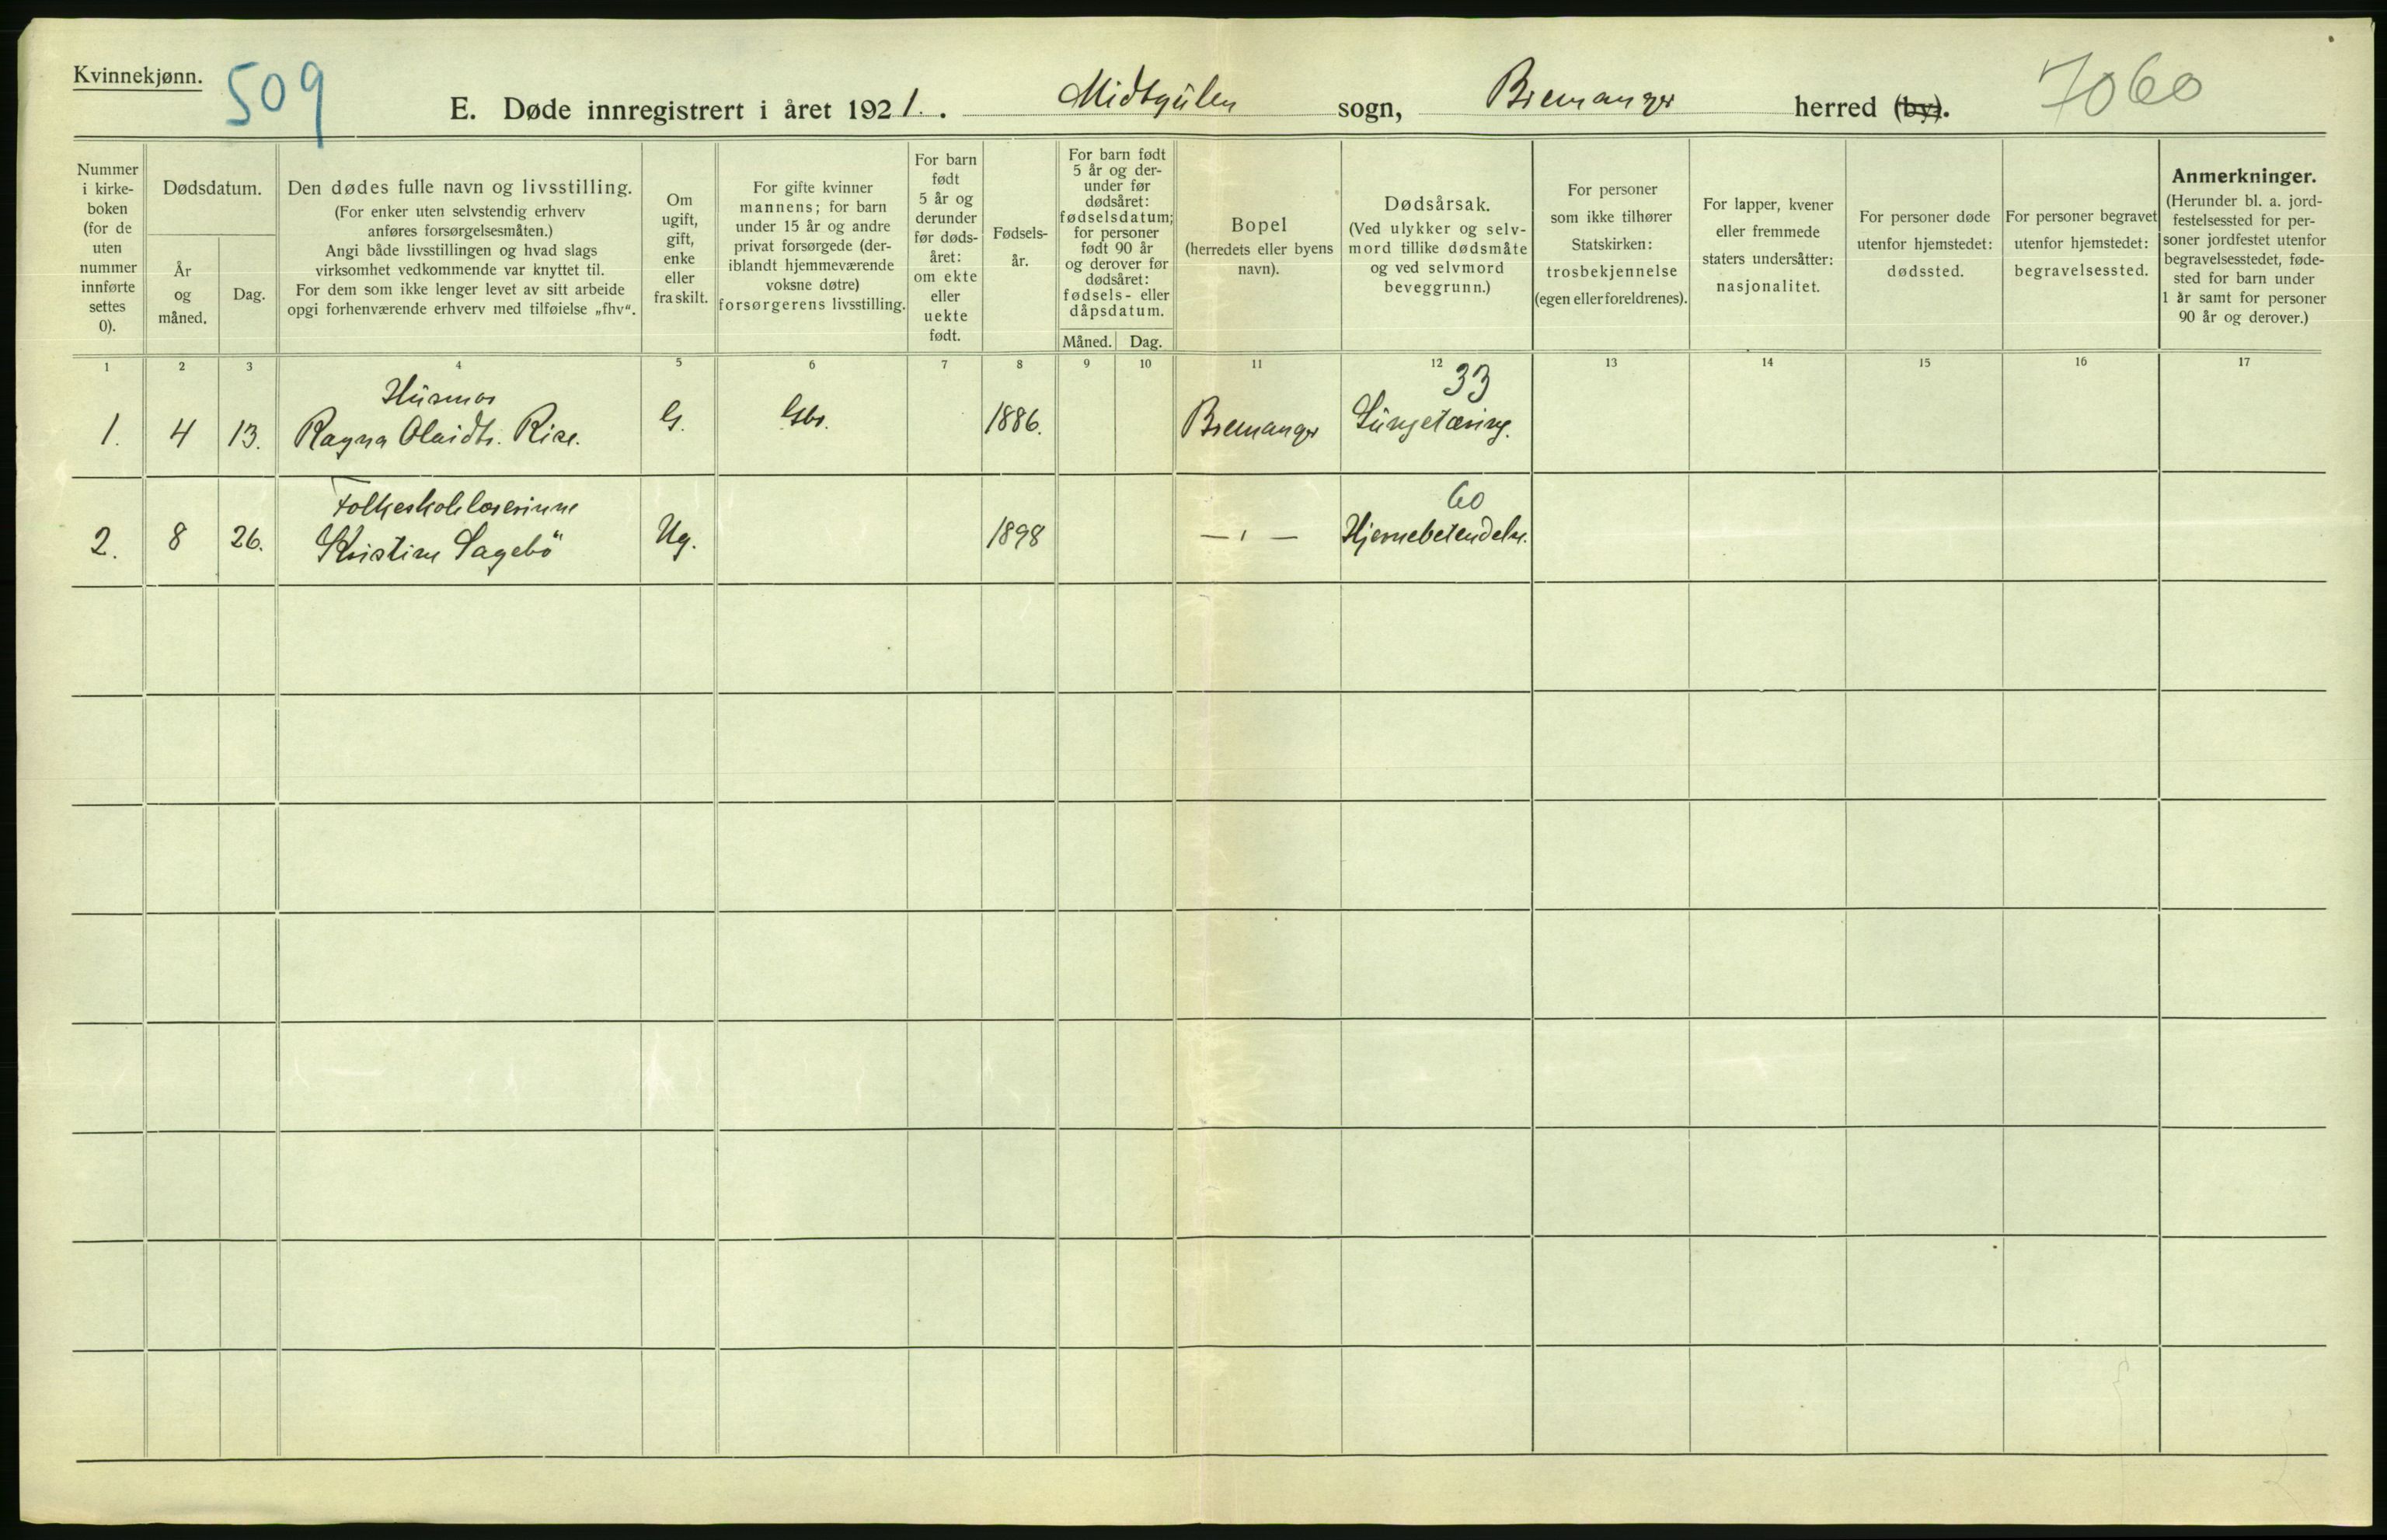 Kvinnekjønn.
509
E. Døde innregistrert i året 1921. Midtgülen sogn, Bremanger herred (by).
7060
Nummer
i kirke-
boken
(for de
uten
nummer
innførte
settes
0).
Dødsdatum.
År
og
måned.
Dag.
Den dødes fulle navn og livsstilling.
(For enker uten selvstendig erhverv
anføres forsørgelsesmåten.)
Angi både livsstillingen og hvad slags
virksomhet vedkommende var knyttet til.
For dem som ikke lenger levet av sitt arbeide
opgi forhenværende erhverv med tilføielse „fhv“.
Om
ugift,
gift,
enke
eller
fraskilt.
For gifte kvinner
mannens; for barn
under 15 år og andre
privat forsørgede (der-
iblandt hjemmeværende
voksne døtre)
forsørgerens livsstilling.
For barn
født
5 år og
derunder
før døds-
året:
om ekte
eller
uekte
født.
Fødsels-
år.
For barn født
5 år og der-
under før
dødsåret:
fødselsdatum;
for personer
født 90 år
og derover før
dødsåret:
fødsels- eller
dåpsdatum.
Måned. Dag.
Bopel
(herredets eller byens
navn).
Dødsårsak.
(Ved ulykker og selv-
mord tillike dødsmåte
og ved selvmord
beveggrunn.)
For personer
som ikke tilhører
Statskirken:
trosbekjennelse
(egen eller foreldrenes).
For lapper, kvener
eller fremmede
staters undersåtter:
nasjonalitet.
For personer døde
utenfor hjemstedet:
dødssted.
For personer begravet
utenfor hjemstedet:
begravelsessted.
Anmerkninger.
(Herunder bl. a. jord-
festelsessted for per-
soner jordfestet utenfor
begravelsesstedet, føde-
sted for barn under
1 år samt for personer
90 år og derover.)
1 2 3 4 5 6 7 8 9 10 11 12 13 14 15 16 17
Hüsmor 33
1. 4 13. Ragna Olaidtr. Rise. G. Gbr. 1886. Bremanger Lüngetæring.
Folkeskolelærerinne 60
2. 8 26. Kristine Sagebö Ug. 1898 — ı — Hjernebetendelse.